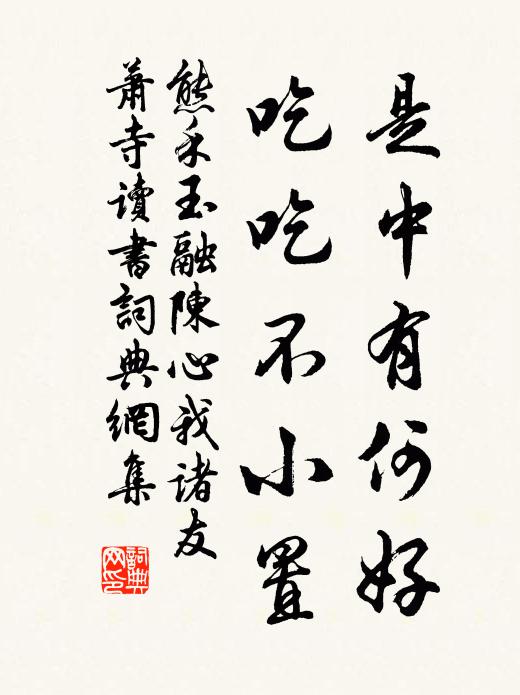 是中有何好
吃吃不小置
熊禾玉融陳心我諸友
蕭寺讀書詞典網集
詞典网印